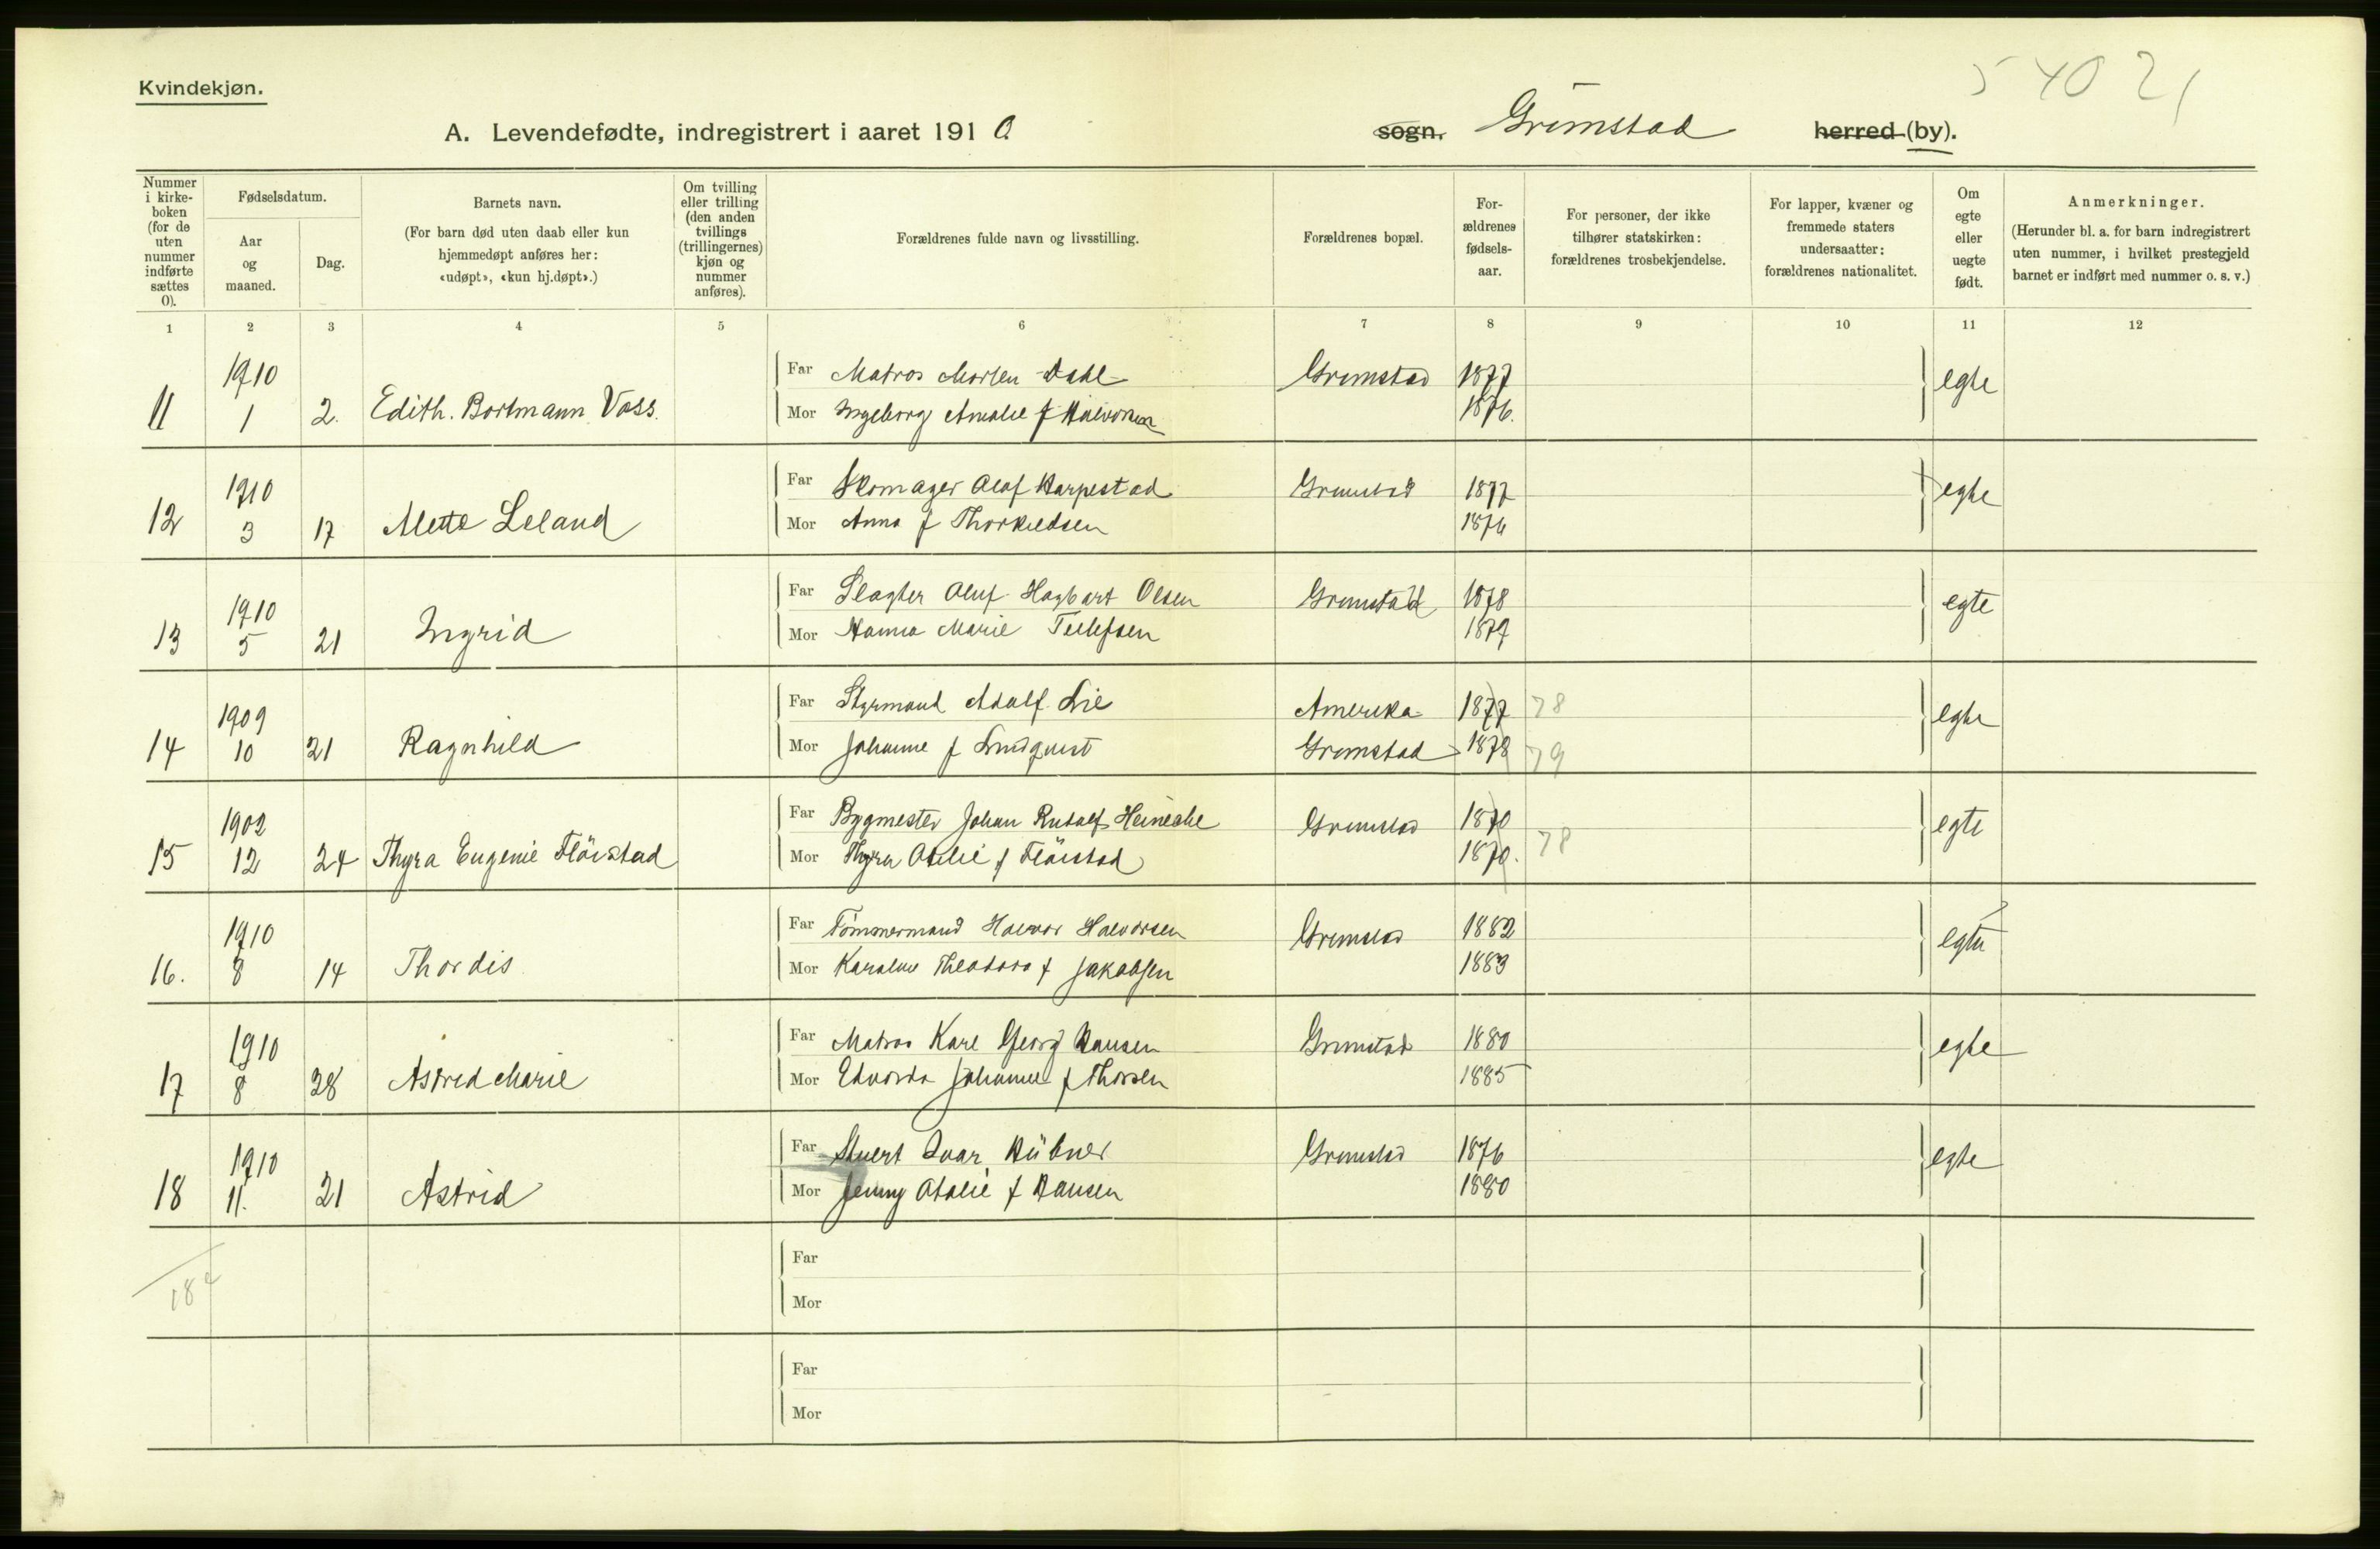 54021
Kvindekjøn.
A. Levendefødte, indregistrert i aaret 1910 sogn. Grimstad herred (by).
Nummer i kirkeboken (for de uten nummer indførte sættes 0).
Fødselsdatum.
Aar og maaned.
Dag.
Barnets navn.
(For barn død uten daab eller kun hjemmedøpt anføres her: «udøpt», «kun hj.døpt».)
Om tvilling eller trilling (den anden tvillings (trillingernes) kjøn og nummer anføres).
Forældrenes fulde navn og livsstilling.
Forældrenes bopæl.
Forældrenes fødselsaar.
For personer, der ikke tilhører statskirken: forældrenes trosbekjendelse.
For lapper, kvæner og fremmede staters undersaatter: forældrenes nationalitet.
Om egte eller uegte født.
Anmerkninger.
(Herunder bl. a. for barn indregistrert uten nummer, i hvilket prestegjeld barnet er indført med nummer o. s. v.)
1 2 3 4 5 6 7 8 9 10 11 12
1910 Far Matros Morten Dahl Grimstad 1877 egte
11 1 2. Edith. Bortmann Voss. Mor Ingeborg Amalie f Halvorsen 1876.
1910 Far Skomager Olaf Harpestad Grimstad 1877 egte
12 3 17 Mette Leland Mor Anna f Thorkildsen 1876
1910 Far Slagter Oluf Hagbart Olsen Grimstad 1878 egte
13 5 21 Ingrid Mor Hanna Marie Tellefsen 1879
1909 Far Styrmand Adolf Lie Amerika 1877 78 egte
14 10 21 Ragnhild Mor Johanne f Lindquist Grimstad 1878 79
1902 Far Bygmester Johan Rudolf Grimstad 1870 egte
15 12 24 Thyra Eugenie Flöistad Mor Thyra f Flöistad 1870. 78
1910 Far Tömmermand Halvor Halvorsen Grimstad 1882 egte
16. 8 14 Thordis Mor Karoline Theodora f Jakobsen 1883
1910 Far Matros Karl Georg Hansen Grimstad 1880 egte
17 8 28 Astrid Marie Mor Edvarda Johanne f Thorsen 1885
1910 Far Stuert Ivar Hübner Grimstad 1876 egte
18 11. 21 Astrid Mor Jenny Otalie f Hansen 1880
Far
18
Mor
Far
Mor